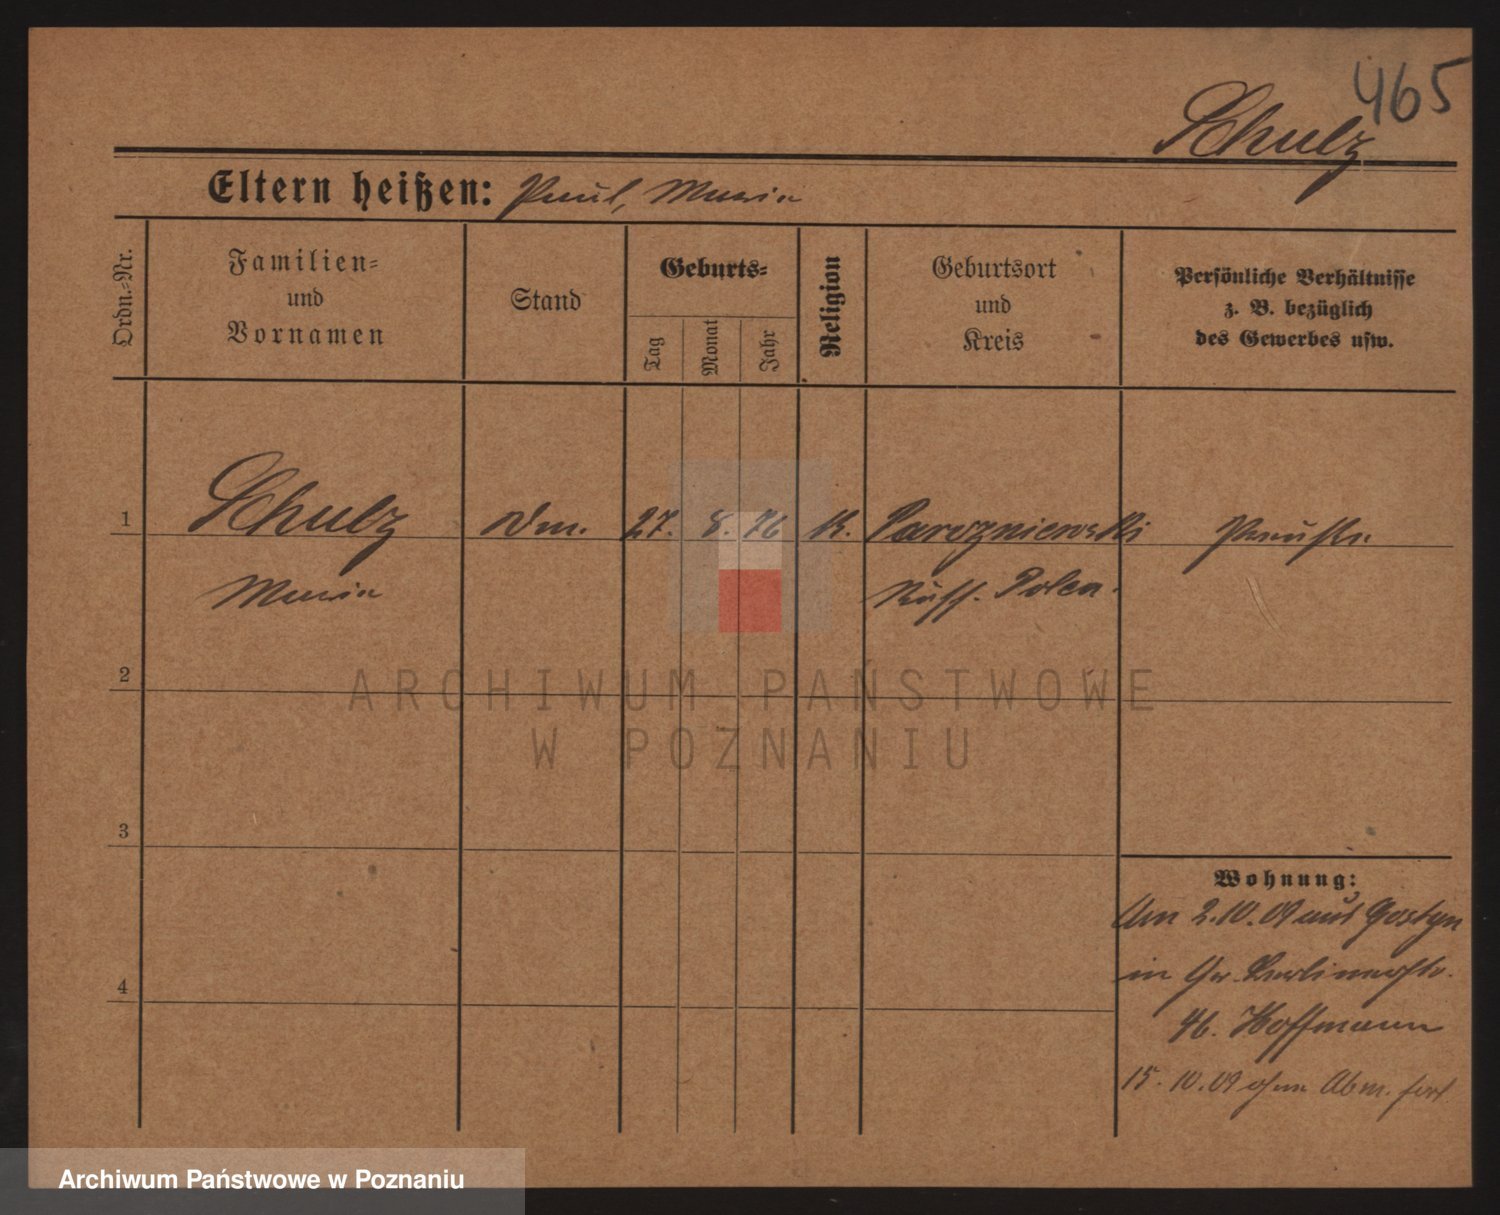 465
Schulz
Eltern heißen: Paul, Maria
Ordn.-Nr.
Familien-
und
Vornamen
Stand
Geburts-
Tag
Monat
Jahr
Religion
Geburtsort
und
Kreis
Persönliche Verhältnisse
z. B. bezüglich
des Gewerbes usw.
1
Schulz
27. 8. 76 K.
Parozniewski
Maria
Russ. Polen.
2
ARCHIWUM PAŃSTWOWE
W POZNANIU
3
4
Wohnung:
Am 2.10.09 aus Gostyn
in Gr. Berlinerstr.
46. Hoffmann
15.10.09 ohne Abm. fort
Archiwum Państwowe w Poznaniu